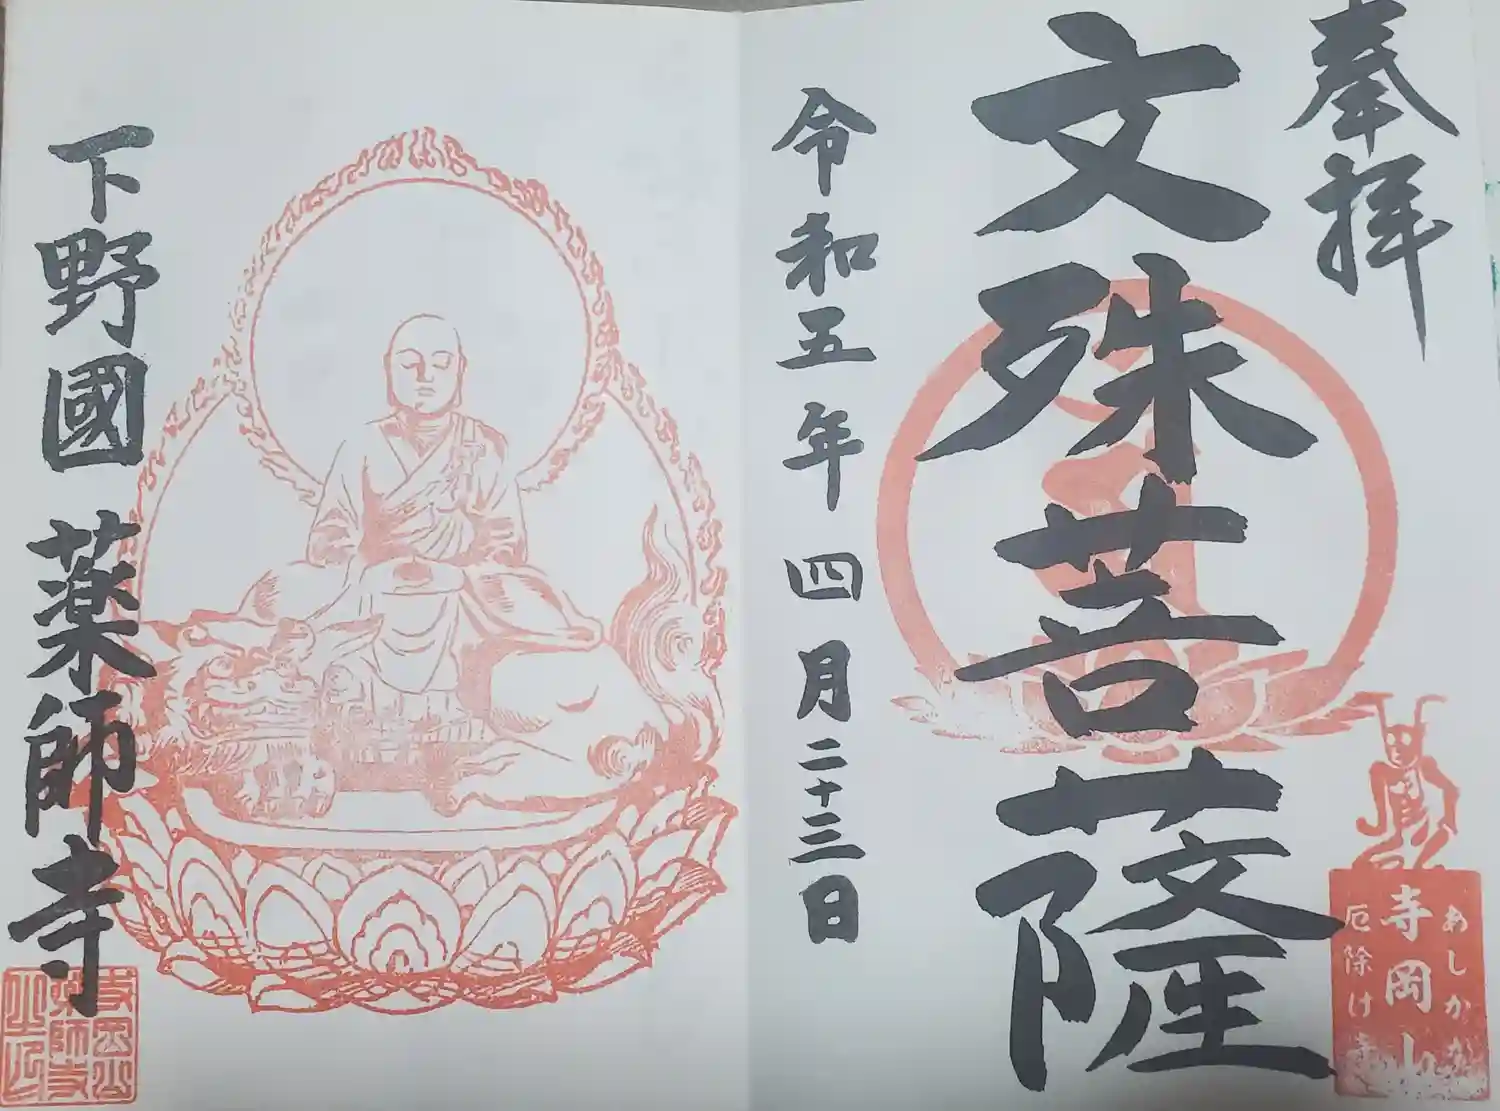 奉拝
文殊菩薩
令和五年 四月二十三日
あしかが
寺岡山
厄除け
下野國 薬師寺
寺岡山
薬師寺
之印